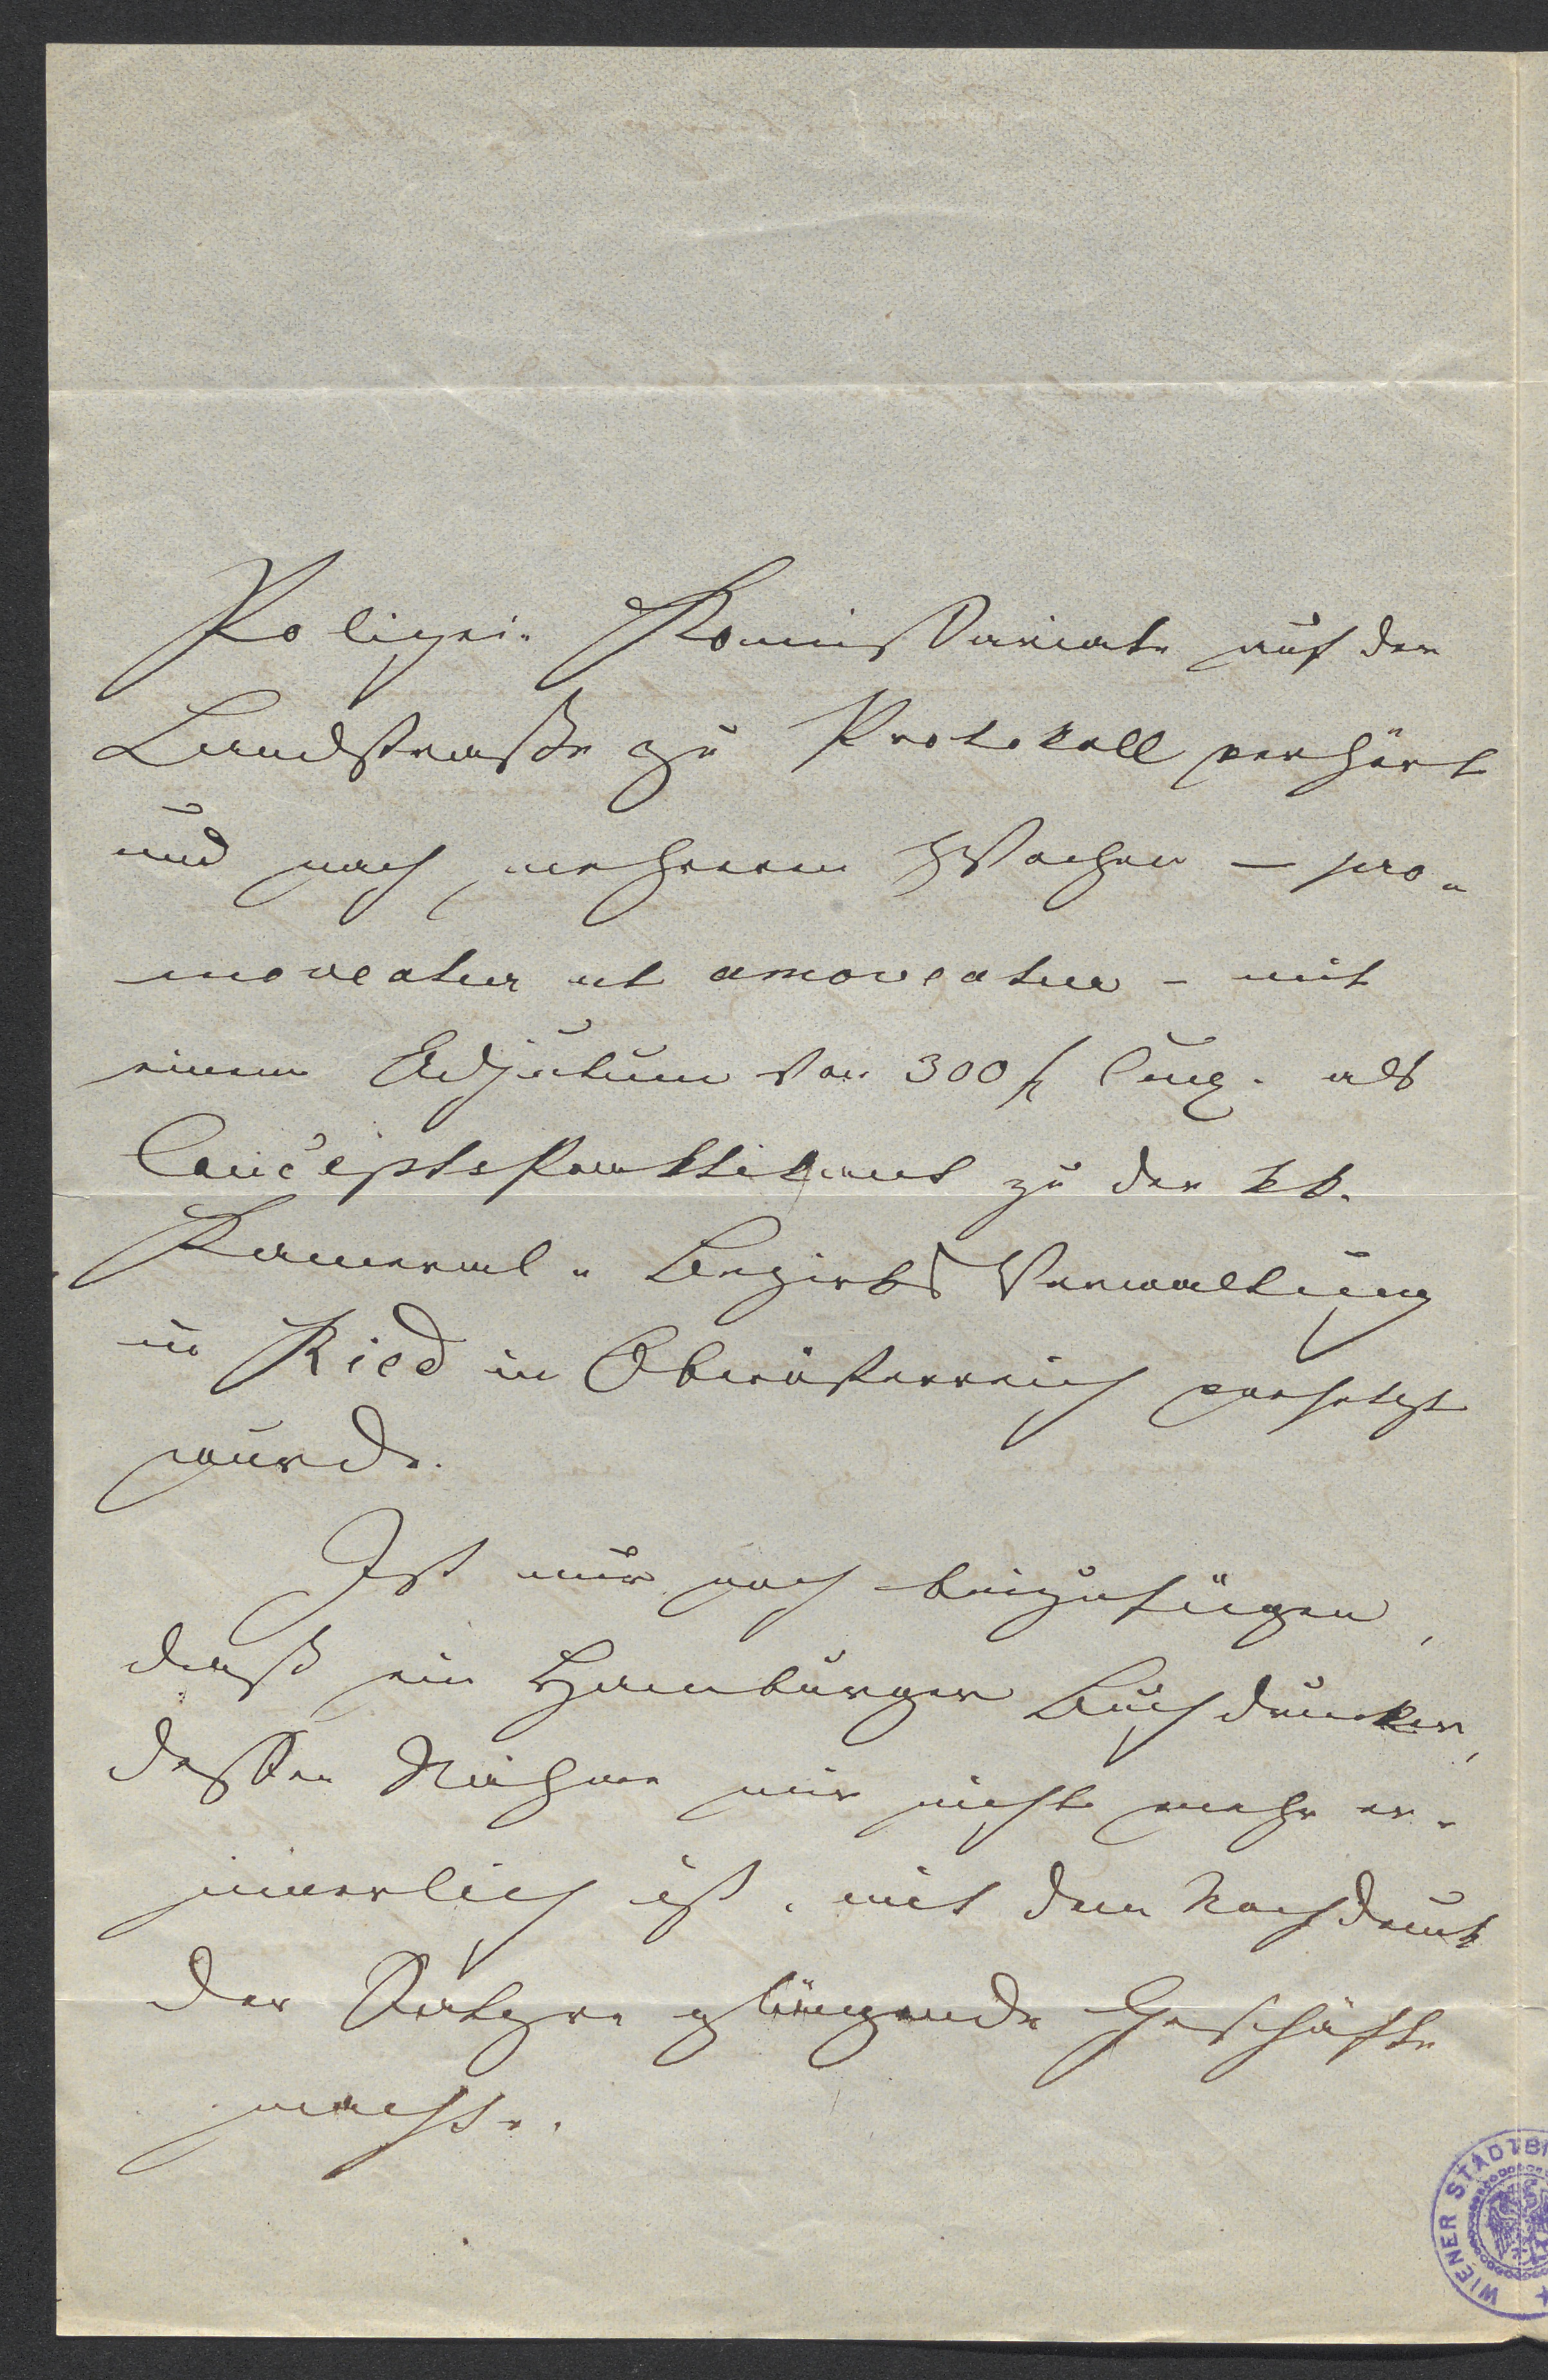 Polizei- Komissariate auf der
Landstrasse zu Protokoll verhört
und nach mehreren Wochen – pro-
moveatur ut amoveatur – mit
einem Adjutum von 300 fl Cmz. als
Conceptspraktikant zu der kk.
Kameral- Bezirks Verwaltung
in Ried in Oberösterreich versetzt
wurde.
Ist nur noch beizufügen,
daß ein Hamburger Buchdrucker,
dessen Nahme mir nicht mehr er-
innerlich ist, mit dem Nachdruck
der Satyre glänzende Geschäfte
machte.
WIENER STADTBI